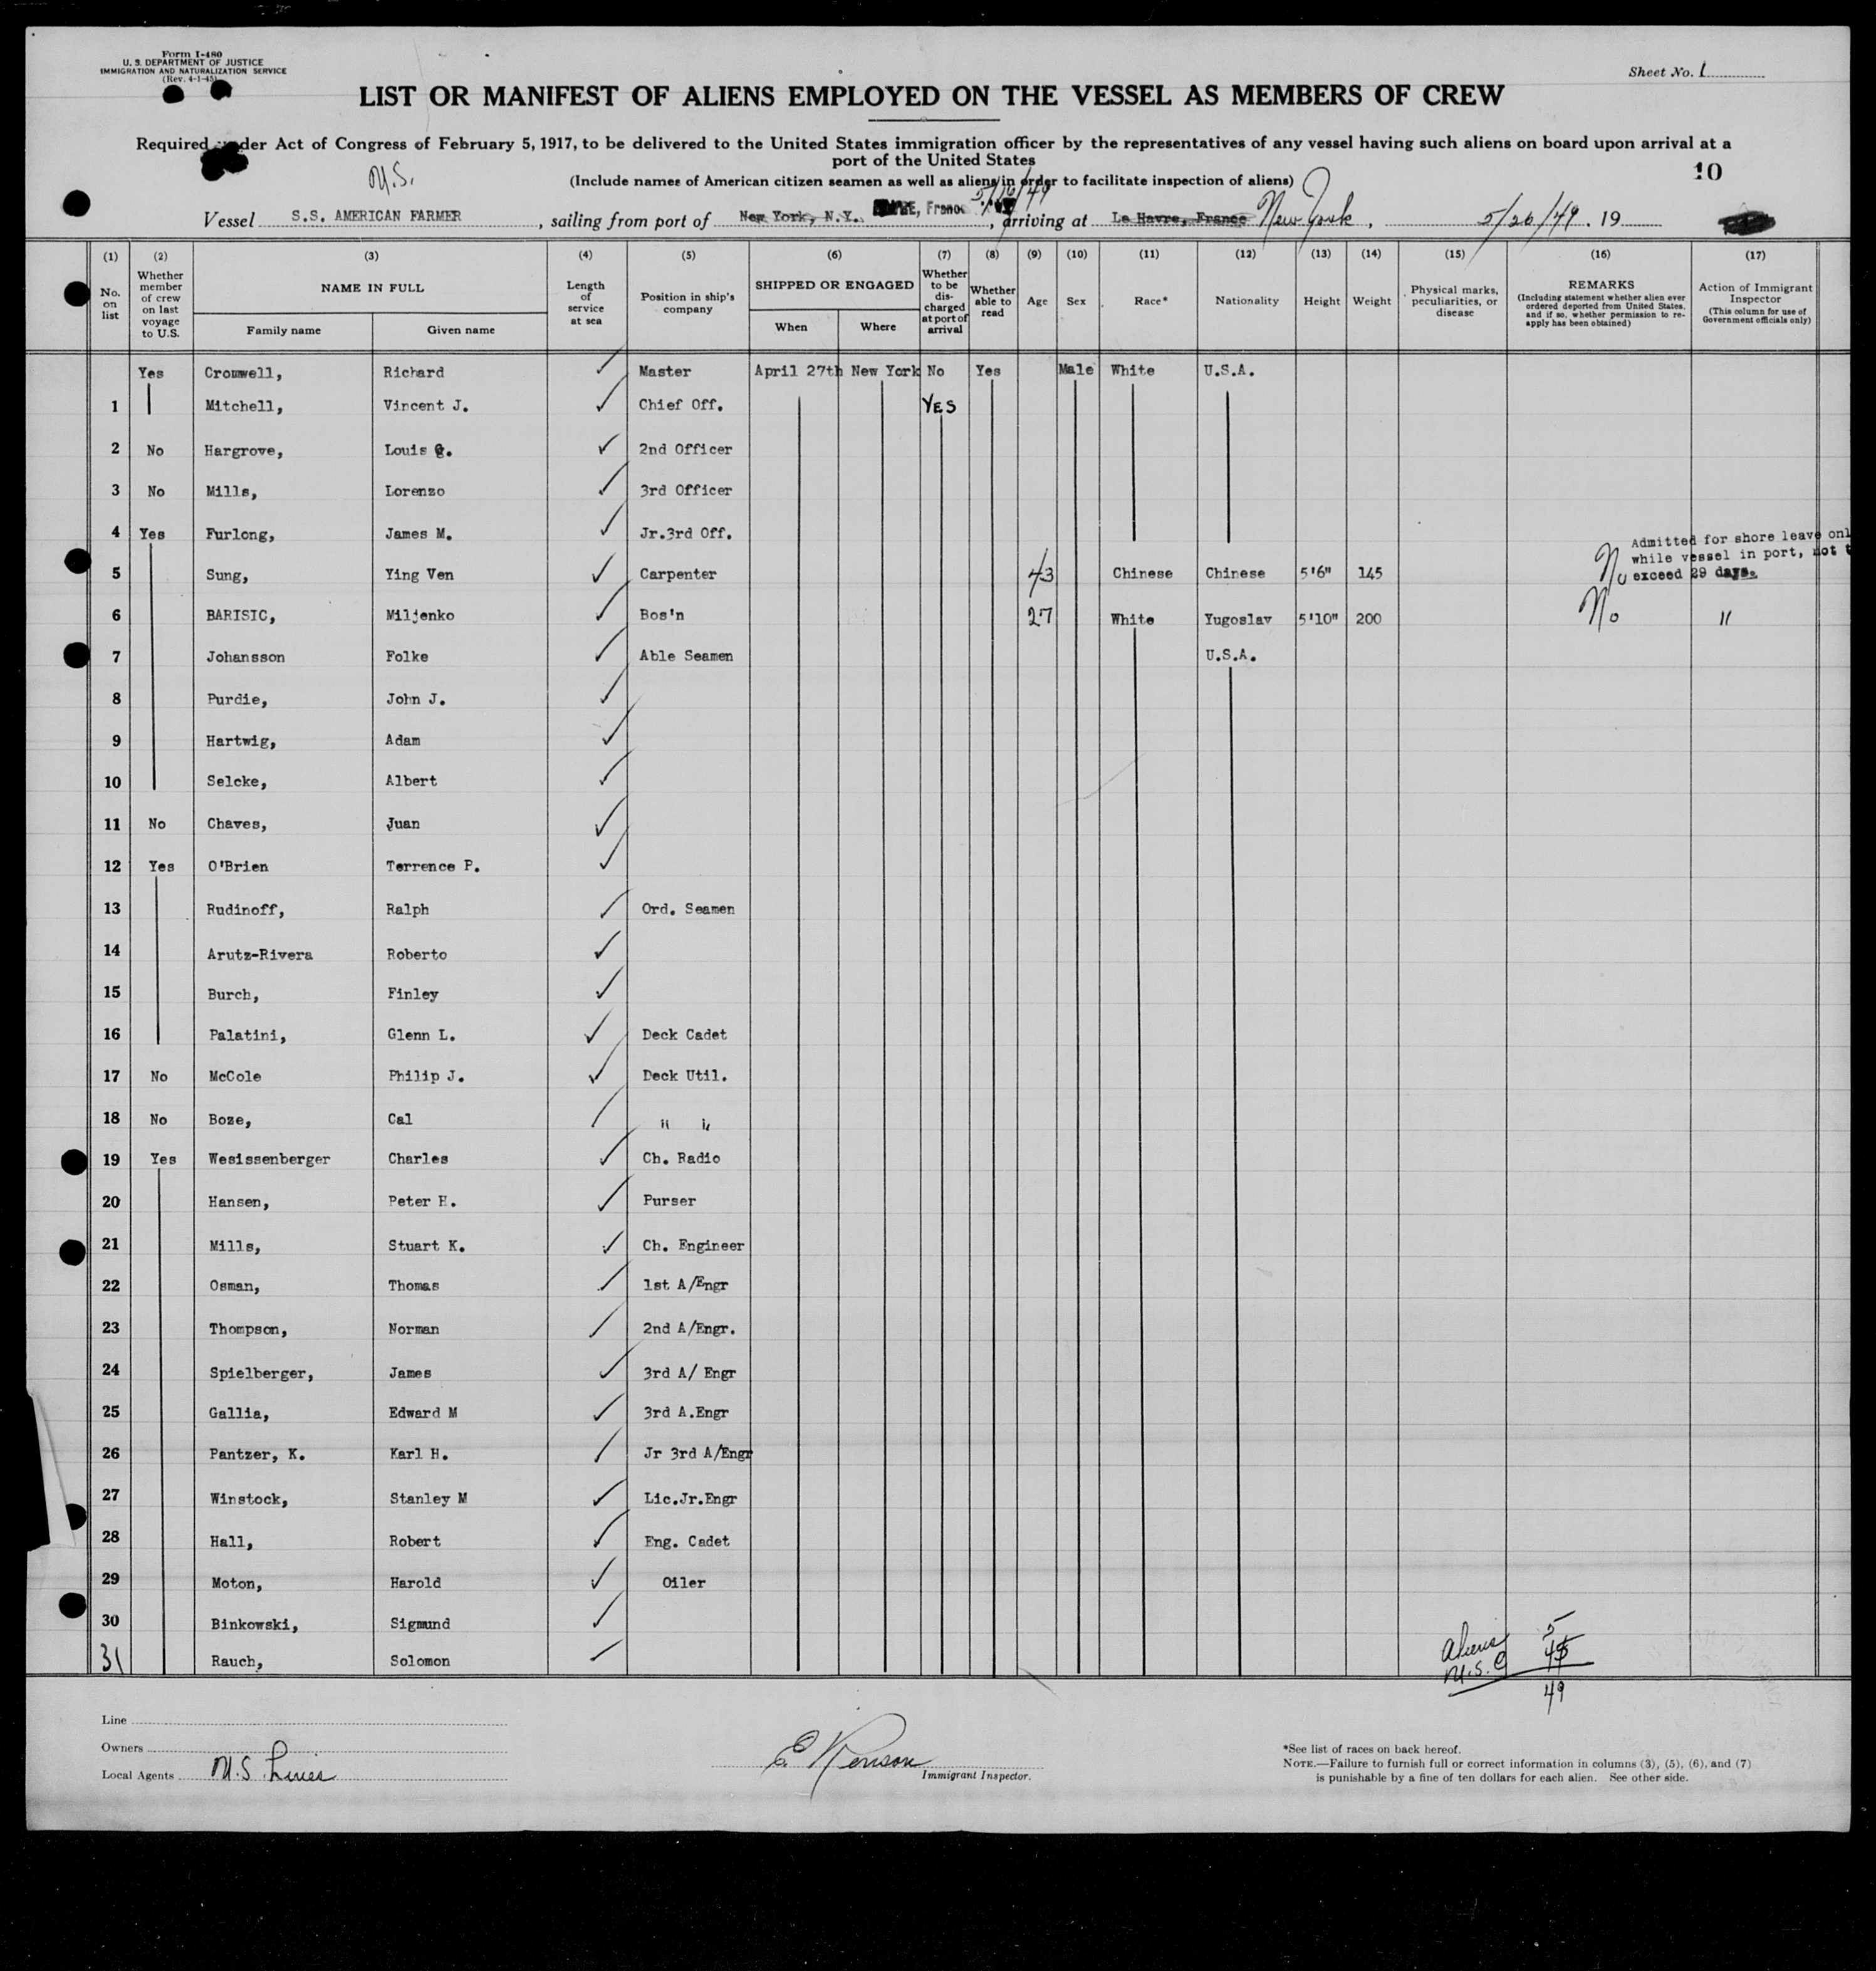 Form I-480
U. S. DEPARTMENT OF JUSTICE
IMMIGRATION AND NATURALIZATION SERVICE
(Rev. 4-1-45)
Sheet No. 1
LIST OR MANIFEST OF ALIENS EMPLOYED ON THE VESSEL AS MEMBERS OF CREW
Required under Act of Congress of February 5, 1917, to be delivered to the United States immigration officer by the representatives of any vessel having such aliens on board upon arrival at a
port of the United States
10
(Include names of American citizen seamen as well as aliens in order to facilitate inspection of aliens)
Vessel S.S. AMERICAN FARMER, sailing from port of New York, N.Y. France, arriving at Le Havre, France New York, 5/26/49. 19
(1) (2) (3) (4) (5) (6) (7) (8) (9) (10) (11) (12) (13) (14) (15) (16) (17)
No. on list
Whether member of crew on last voyage to U.S.
NAME IN FULL
Family name
Given name
Length of service at sea
Position in ship's company
SHIPPED OR ENGAGED
When
Where
Whether to be discharged at port of arrival
Whether able to read
Age
Sex
Race*
Nationality
Height
Weight
Physical marks, peculiarities, or disease
REMARKS
(Including statement whether alien ever ordered deported from United States, and if so, whether permission to re-apply has been obtained)
Action of Immigrant Inspector
(This column for use of Government officials only)
Yes Cromwell, Richard Master April 27th New York No Yes Male White U.S.A.
1 Mitchell, Vincent J. Chief Off. YES
2 No Hargrove, Louis G. 2nd Officer
3 No Mills, Lorenzo 3rd Officer
4 Yes Furlong, James M. Jr.3rd Off.
5 Sung, Ying Ven Carpenter 43 Chinese Chinese 5'6" 145 No Admitted for shore leave onl
while vessel in port, not t
exceed 29 days.
6 BARISIC, Miljenko Bos'n 27 White Yugoslav 5'10" 200 No "
7 Johansson Folke Able Seamen U.S.A.
8 Purdie, John J.
9 Hartwig, Adam
10 Selcke, Albert
11 No Chaves, Juan
12 Yes O'Brien Terrence P.
13 Rudinoff, Ralph Ord. Seamen
14 Arutz-Rivera Roberto
15 Burch, Finley
16 Palatini, Glenn L. Deck Cadet
17 No McCole Philip J. Deck Util.
18 No Boze, Cal " "
19 Yes Wesissenberger Charles Ch. Radio
20 Hansen, Peter H. Purser
21 Mills, Stuart K. Ch. Engineer
22 Osman, Thomas 1st A/Engr
23 Thompson, Norman 2nd A/Engr.
24 Spielberger, James 3rd A/ Engr
25 Gallia, Edward M 3rd A.Engr
26 Pantzer, K. Karl H. Jr 3rd A/Engr
27 Winstock, Stanley M Lic.Jr.Engr
28 Hall, Robert Eng. Cadet
29 Moton, Harold Oiler
30 Binkowski, Sigmund
31 Rauch, Solomon
Aliens 5
U.S.C
49
Line
Owners
Local Agents U.S. Lines
Immigrant Inspector.
*See list of races on back hereof.
NOTE.—Failure to furnish full or correct information in columns (3), (5), (6), and (7)
is punishable by a fine of ten dollars for each alien. See other side.